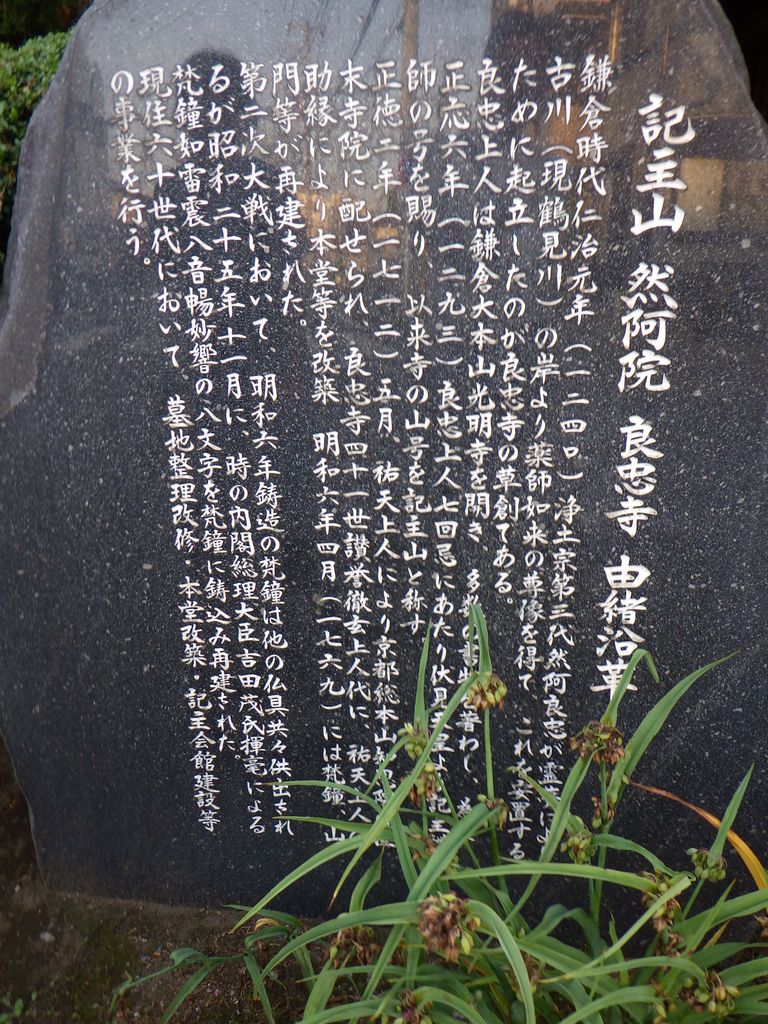 記主山 然阿院 良忠寺 由緒沿革
鎌倉時代仁治元年（一二四〇）浄土宗第三代然阿良忠が霊
古川（現鶴見川）の岸より薬師如来の尊像を得て、これを安置する
ために起立したのが良忠寺の草創である。
良忠上人は鎌倉大本山光明寺を開き、多 著わし、
正応六年（一二九三）良忠上人七回忌にあたり伏見天 記主
師の号を賜り、以来寺の山号を記主山と称す
正徳二年（一七一二）五月、祐天上人により京都総本山知
末寺院に配せられ 良忠寺四十一世讃誉徹玄上人代に 祐天上人
助縁により本堂等を改築 明和六年四月（一七六九）には梵鐘、山
門等が再建された。
第二次大戦において、明和六年鋳造の梵鐘は他の仏具共々供出され
るが昭和二十五年十一月に、時の内閣総理大臣吉田茂氏揮毫による
梵鐘如雷震八音暢妙響の八文字を梵鐘に鋳込み再建された。
現住六十世代において、墓地整理改修・本堂改築・記主会館建設等
の事業を行う。